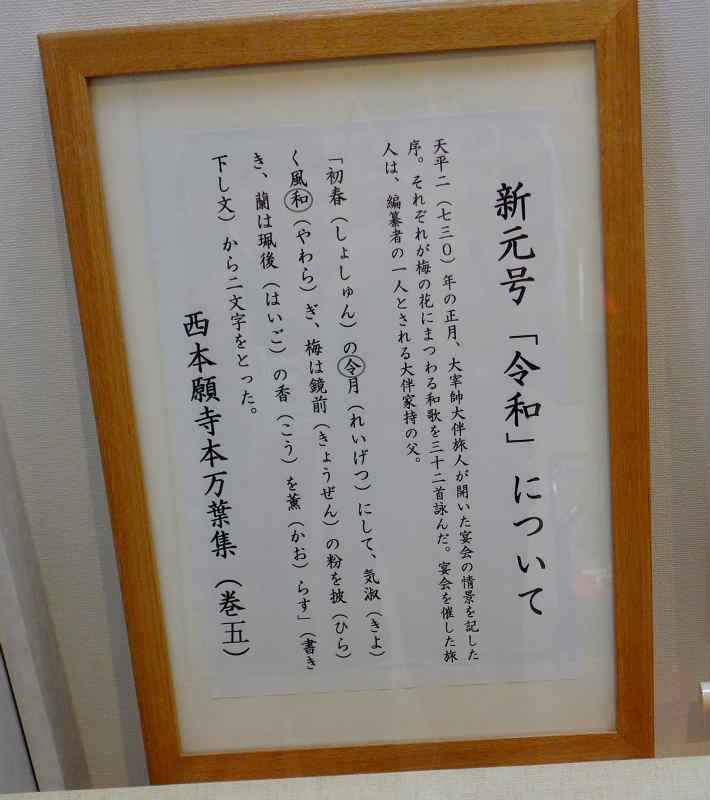 新元号「令和」について
天平二（七三〇）年の正月、大宰帥大伴旅人が開いた宴会の情景を記した
序。それぞれが梅の花にまつわる和歌を三十二首詠んだ。宴会を催した旅
人は、編纂者の一人とされる大伴家持の父。
「初春（しょしゅん）の令月（れいげつ）にして、気淑（きよ）
く風和（やわら）ぎ、梅は鏡前（きょうぜん）の粉を披（ひら）
き、蘭は珮後（はいご）の香（こう）を薫（かお）らす」（書き
下し文）から二文字をとった。
西本願寺本万葉集（巻五）